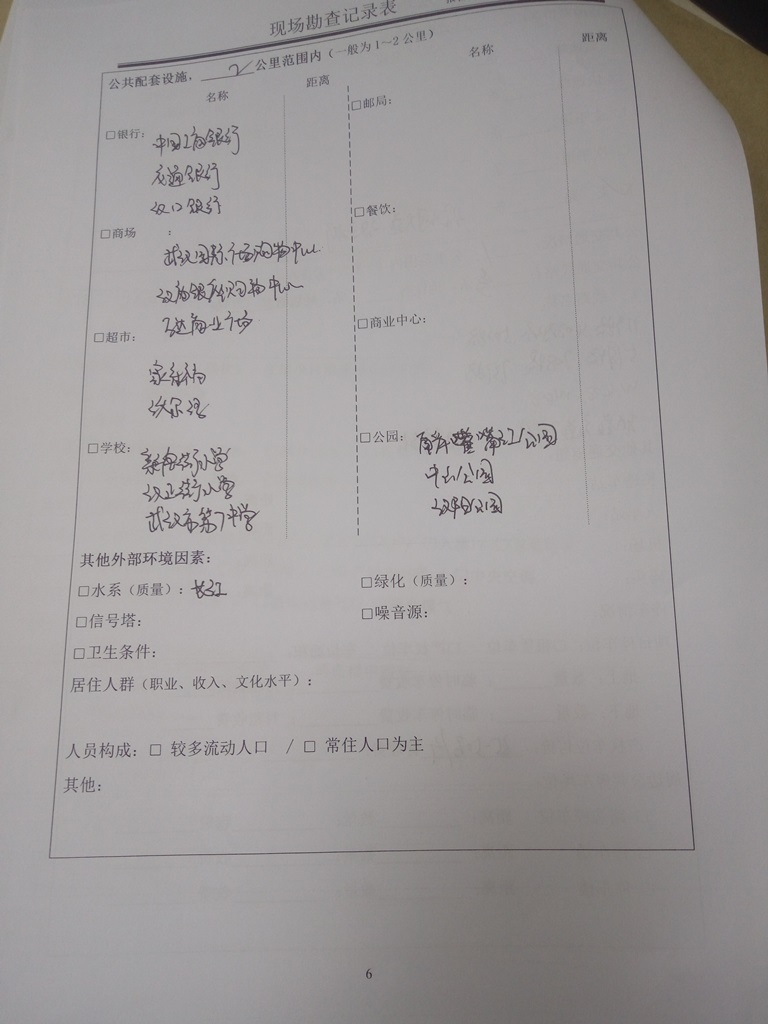 现场勘查记录表
公共配套设施， 2 公里范围内（一般为1～2公里）
名称 距离 名称 距离
□银行： 中国工商银行
交通银行
汉口银行
□邮局：
□商场 ：
武汉国际广场购物中心
购物中心
商业广场
□餐饮：
□超市：
家乐福
沃尔玛
□商业中心：
□学校： 新安街小学
汉正街小学
武汉市第 中学
□公园： 南岸嘴江公园
中山公园
公园
其他外部环境因素：
□水系（质量）：长江
□绿化（质量）：
□信号塔：
□噪音源：
□卫生条件：
居住人群（职业、收入、文化水平）：
人员构成：□ 较多流动人口 / □ 常住人口为主
其他：
6